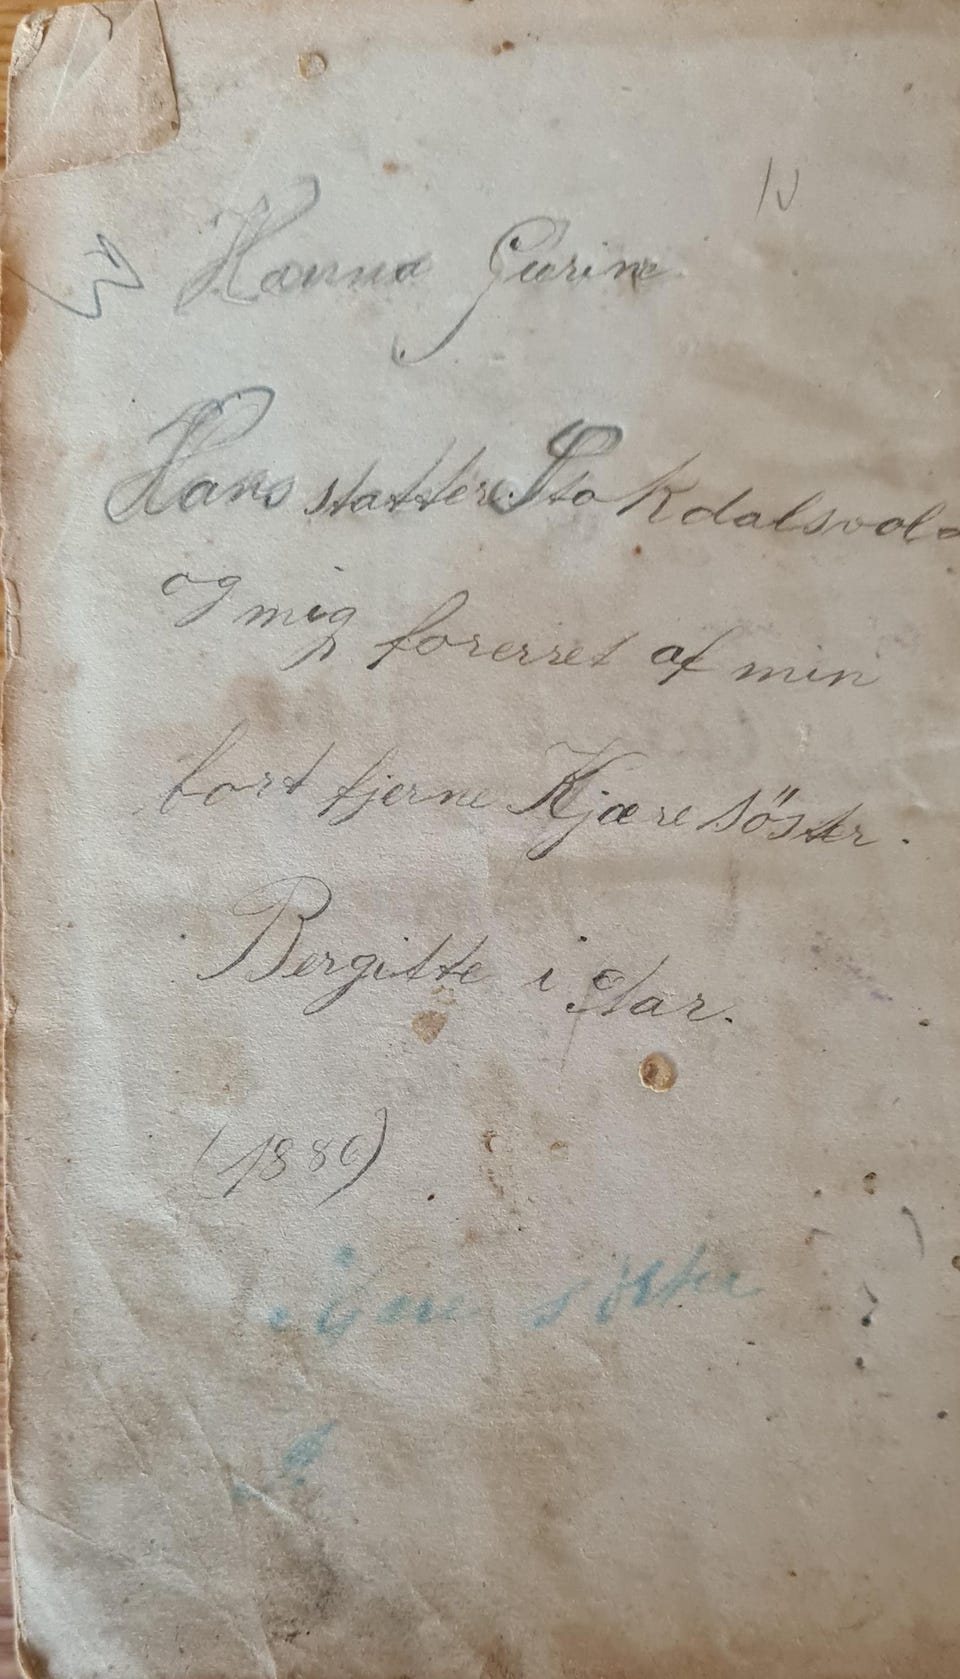 Hanna Gurine
Hans statter Stokdalsvold
og mig forerret af min
bort fjerne Kjære söster.
Bergitte i Aar.
(1886)
Kjære söster